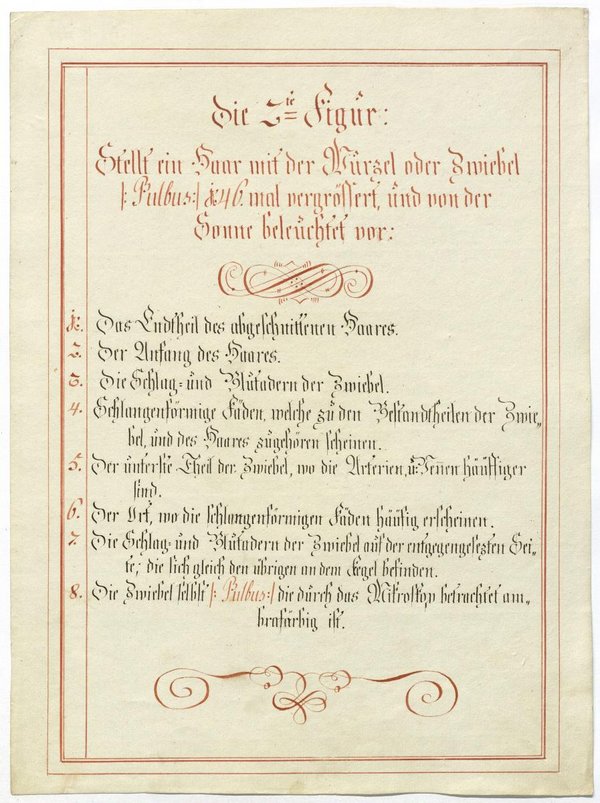 Die 2te Figur:
Stellt ein Haar mit der Würzel oder Zwiebel
/: Bulbus:/ 146. mal vergrössert, und von der
Sonne beleuchtet vor:
1. Das Endtheil des abgeschnittenen Haares.
2. Der Anfang des Haares.
3. Die Schlag- und Blutadern der Zwiebel.
4. Schlangenförmige Fäden, welche zu den Bestandtheilen der Zwie-
bel, und des Haares zugehören scheinen.
5. Der unterste Theil der Zwiebel, wo die Arterien, u: Venen häuffiger
sind.
6. Der Ort, wo die schlangenförmigen Fäden häufig erscheinen.
7. Die Schlag- und Blutadern der Zwiebel auf der entgegengesezten Sei-
te, die sich gleich den übrigen an dem Kegel befinden.
8. Die Zwiebel selbst /: Bulbus:/ die durch das Mikroskop betrachtet am-
brafärbig ist.